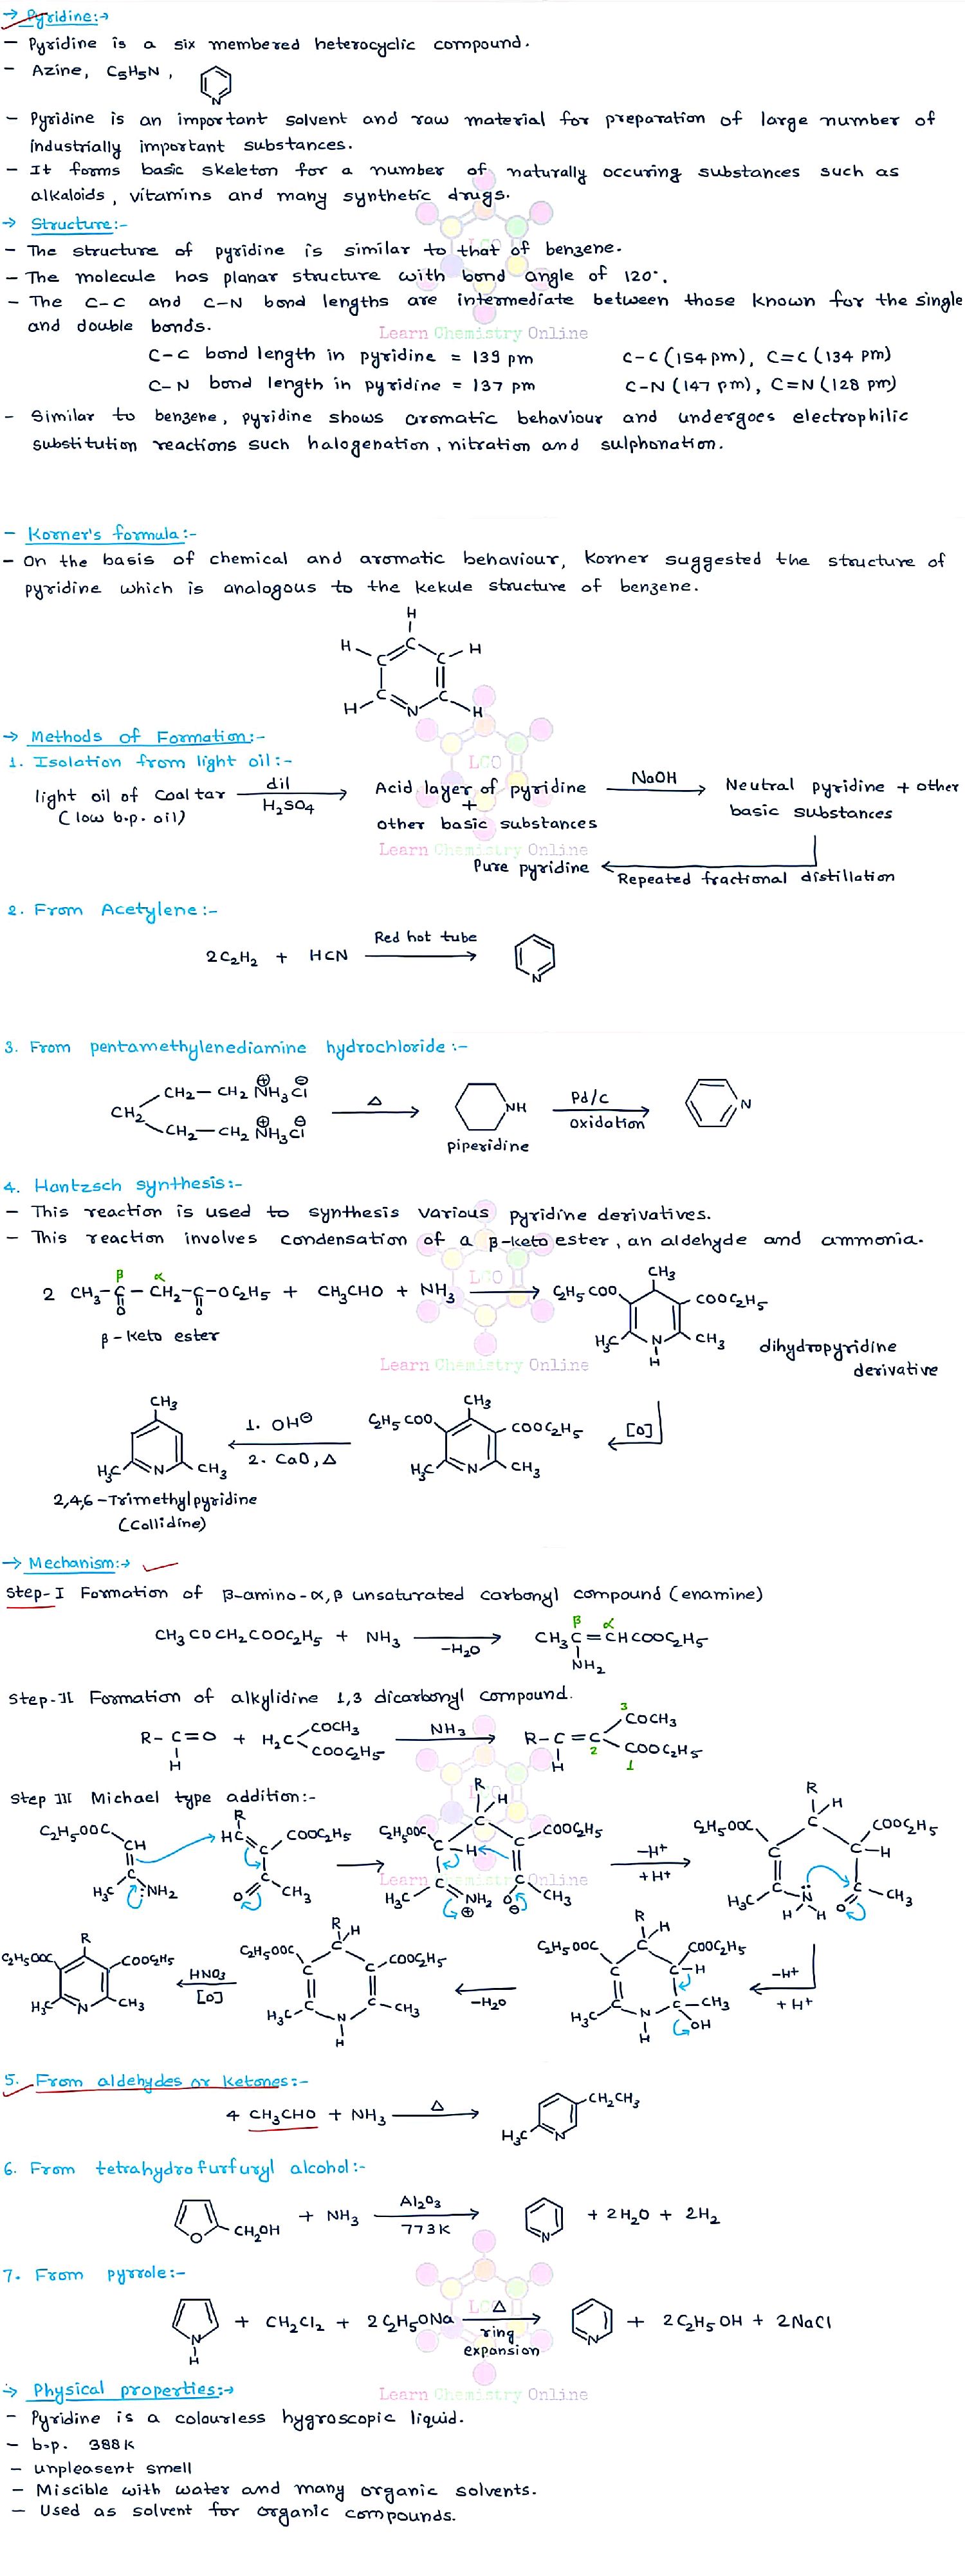 → Pyridine:→
– Pyridine is a six membered heterocyclic compound.
– Azine, C5H5N,
N
– Pyridine is an important solvent and raw material for preparation of large number of
industrially important substances.
– It forms basic skeleton for a number of naturally occuring substances such as
alkaloids, vitamins and many synthetic drugs.
→ Structure:-
– The structure of pyridine is similar to that of benzene.
– The molecule has planar structure with bond angle of 120°.
– The C-C and C-N bond lengths are intermediate between those known for the single
and double bonds.
Learn Chemistry Online
C-C bond length in pyridine = 139 pm C-C (154 pm), C=C (134 pm)
C-N bond length in pyridine = 137 pm C-N (147 pm), C=N (128 pm)
– Similar to benzene, pyridine shows aromatic behaviour and undergoes electrophilic
substitution reactions such halogenation, nitration and sulphonation.
– Korner's formula:-
– On the basis of chemical and aromatic behaviour, Korner suggested the structure of
pyridine which is analogous to the kekule structure of benzene.
H
H C H
C C
C C
H N H
→ Methods of Formation:-
1. Isolation from light oil:-
LCO
light oil of coal tar dil H2SO4 → Acid layer of pyridine NaOH → Neutral pyridine + other
(low b.p. oil) + basic substances
other basic substances
Learn Chemistry Online
Pure pyridine ← Repeated fractional distillation
2. From Acetylene:-
2C2H2 + HCN Red hot tube → N
3. From pentamethylenediamine hydrochloride:-
CH2–CH2 ⊕NH3 ⊖Cl
CH2 Δ → NH Pd/C oxidation → N
CH2–CH2 ⊕NH3 ⊖Cl
piperidine
4. Hantzsch synthesis:-
– This reaction is used to synthesis various pyridine derivatives.
– This reaction involves condensation of a β-keto ester, an aldehyde and ammonia.
LCO
β α CH3
2 CH3-C-CH2-C-OC2H5 + CH3CHO + NH3 → C2H5COO COOC2H5
O O
β-keto ester H3C N CH3 dihydropyridine
H derivative
Learn Chemistry Online
CH3 CH3
1. OH⊖ C2H5COO COOC2H5 [O]
2. CaO, Δ
H3C N CH3 H3C N CH3
2,4,6-Trimethylpyridine
(Collidine)
→ Mechanism:→
Step-I Formation of β-amino-α,β unsaturated carbonyl compound (enamine)
β α
CH3COCH2COOC2H5 + NH3 -H2O → CH3C=CHCOOC2H5
NH2
Step-II Formation of alkylidine 1,3 dicarbonyl compound.
3
R-C=O + H2C COCH3 NH3 → R-C=C COCH3
H COOC2H5 H 2 COOC2H5
1
Step III Michael type addition:-
R R R
H H
C2H5OOC CH HC COOC2H5 C2H5OOC C COOC2H5 -H+ C2H5OOC C COOC2H5
C C → C-H C +H+ C C-H
H3C :NH2 O C CH3 H3C C NH2 O C CH3 H3C C N C CH3
⊕ ⊖ H H O
Learn Chemistry Online
R R R
H H
C2H5OOC COOC2H5 HNO3 C2H5OOC C COOC2H5 C2H5OOC C COOC2H5 -H+
[O] C C -H2O C C-H +H+
H3C N CH3 H3C-C C-CH3 H3C C C-CH3
N N OH
H H
5. From aldehydes or ketones:-
4 CH3CHO + NH3 Δ → CH2CH3
H3C N
6. From tetrahydrofurfuryl alcohol:-
O CH2OH + NH3 Al2O3 773K → N + 2H2O + 2H2
7. From pyrrole:-
N H + CH2Cl2 + 2C2H5ONa Δ ring expansion → N + 2C2H5OH + 2NaCl
→ Physical properties:→
Learn Chemistry Online
– Pyridine is a colourless hygroscopic liquid.
– b.p. 388K
– unpleasent smell
– Miscible with water and many organic solvents.
– Used as solvent for organic compounds.